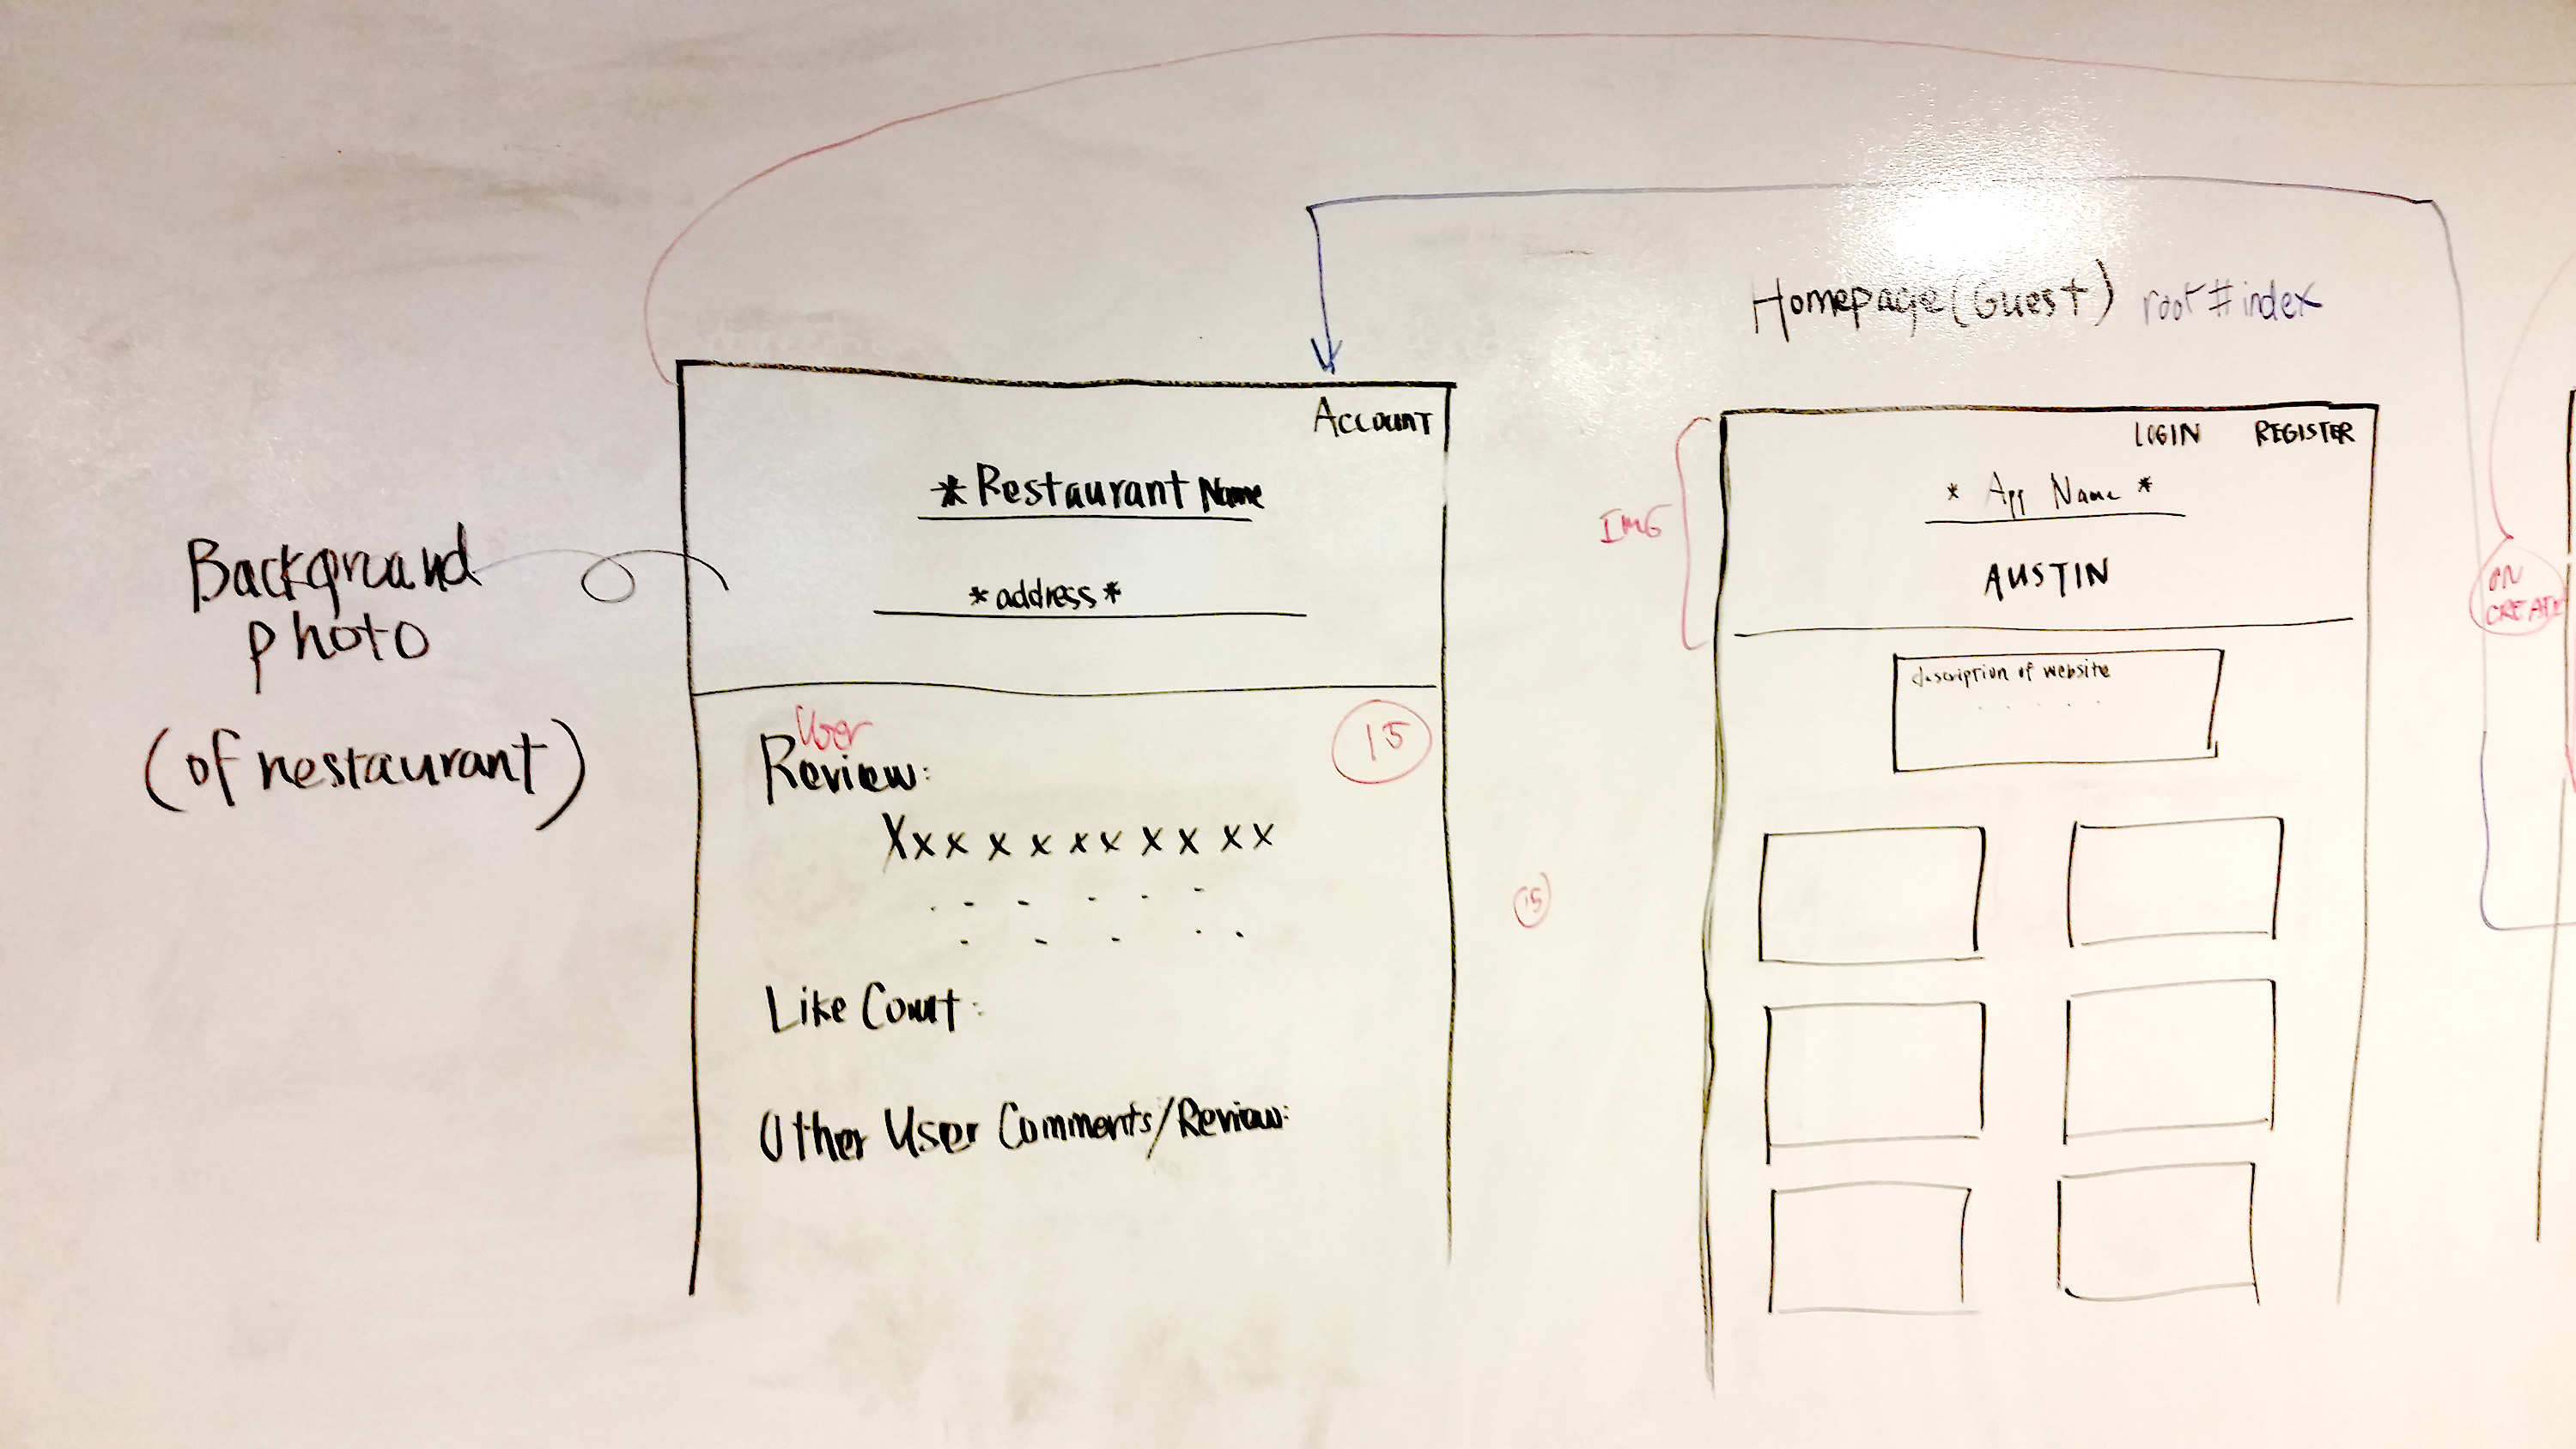 Background
photo
(of restaurant)
Account
*Restaurant Name
*address*
User
Review:
15
Xxx x x x x x x x x
Like Count:
Other User Comments/Review:
15
Homepage (Guest) root#index
IMG
LOGIN REGISTER
* App Name *
AUSTIN
description of website
ON
CREATE